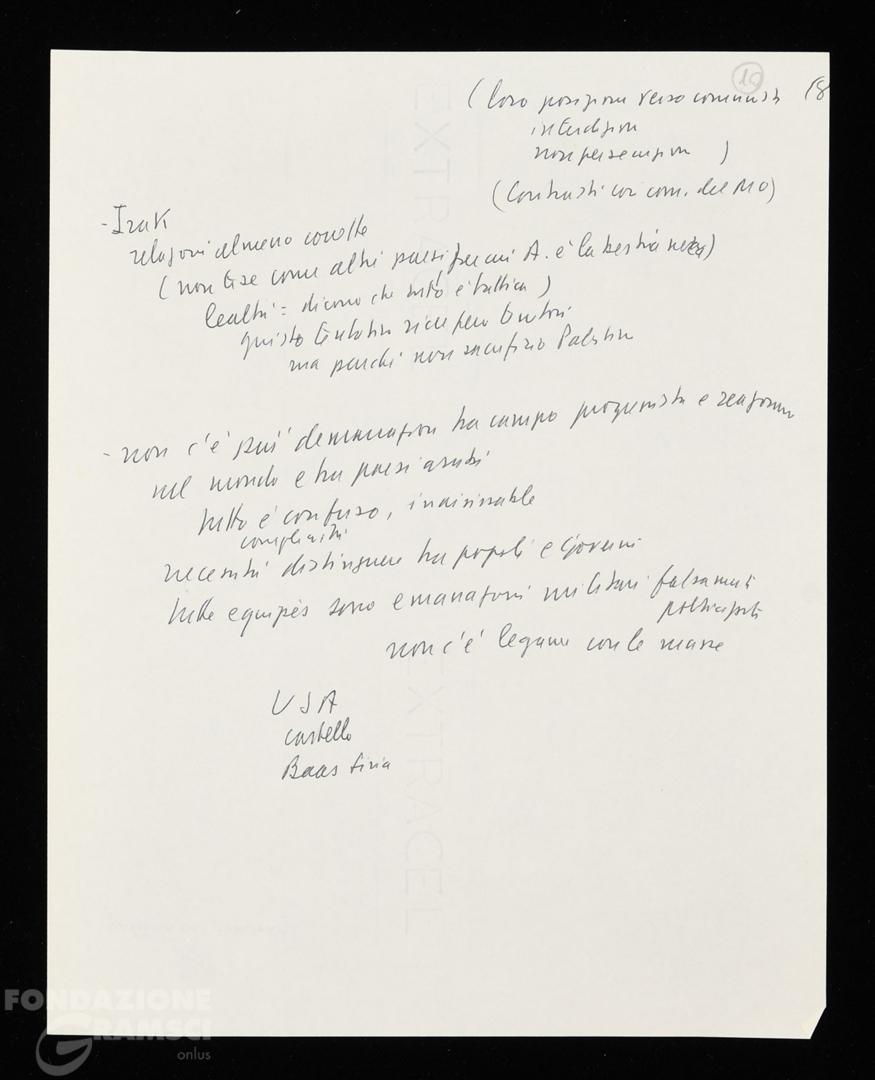 18
(loro posizione verso comunisti 18
interdizione
non persecuzione)
(Contrasti coi com. del MO)
- Irak
relazioni almeno corrette
(non tese come altri paesi per cui A. è la bestia nera)
lealtà = dicono che tutto è tattica)
questo tentativo recupero territori
ma perché non sacrifizio Palestina
- non c'è più demarcazione tra campo progressista e reazionario
nel mondo e tra paesi arabi
tutto è confuso,
complicità
necessità distinguere tra popoli e governi
tutte equipès sono emanazioni militari falsamente
politicizzate
non c'è legame con le masse
USA
castello
Baas Siria
EXTRACEL
EXTRACEL
FONDAZIONE
GRAMSCI
onlus